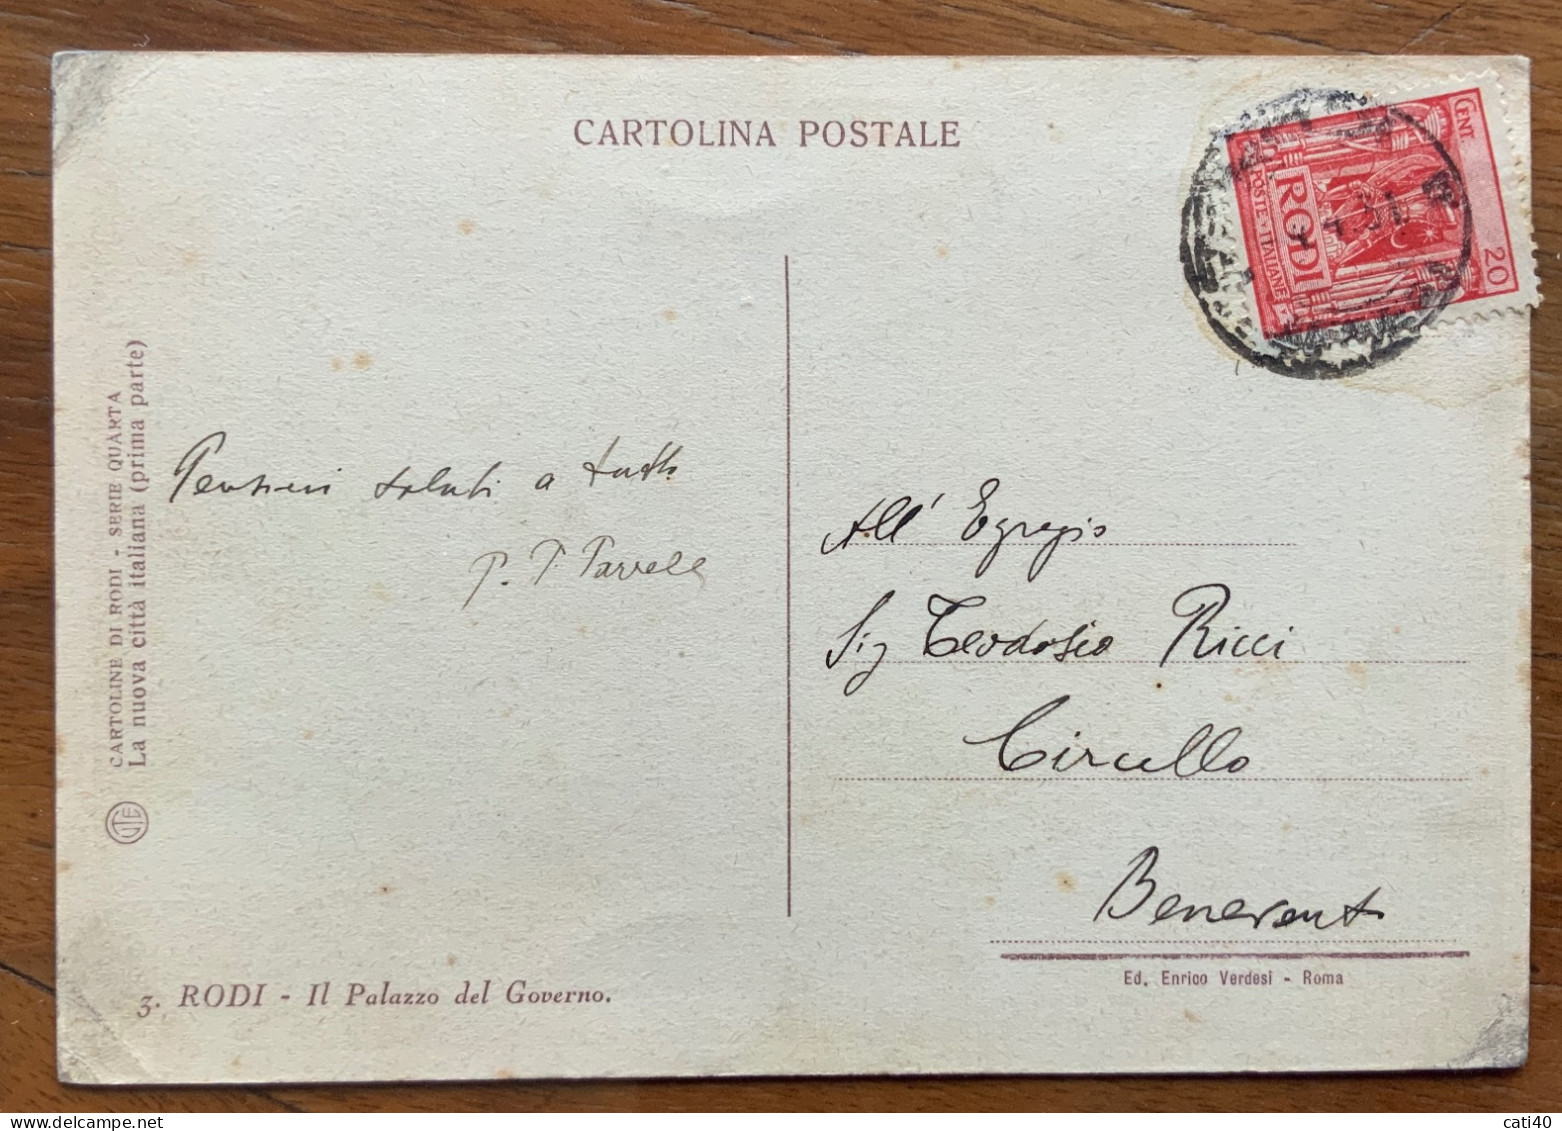 CARTOLINA POSTALE
CENT 20
RODI
POSTE ITALIANE
4.31
CARTOLINE DI RODI - SERIE QUARTA
La nuova città italiana (prima parte)
UTE
Pensieri saluti a tutti
P. P. Parrella
All' Egregio
Sig Teodosio Ricci
Circello
Benevento
3. RODI - Il Palazzo del Governo.
Ed. Enrico Verdesi - Roma
cati40